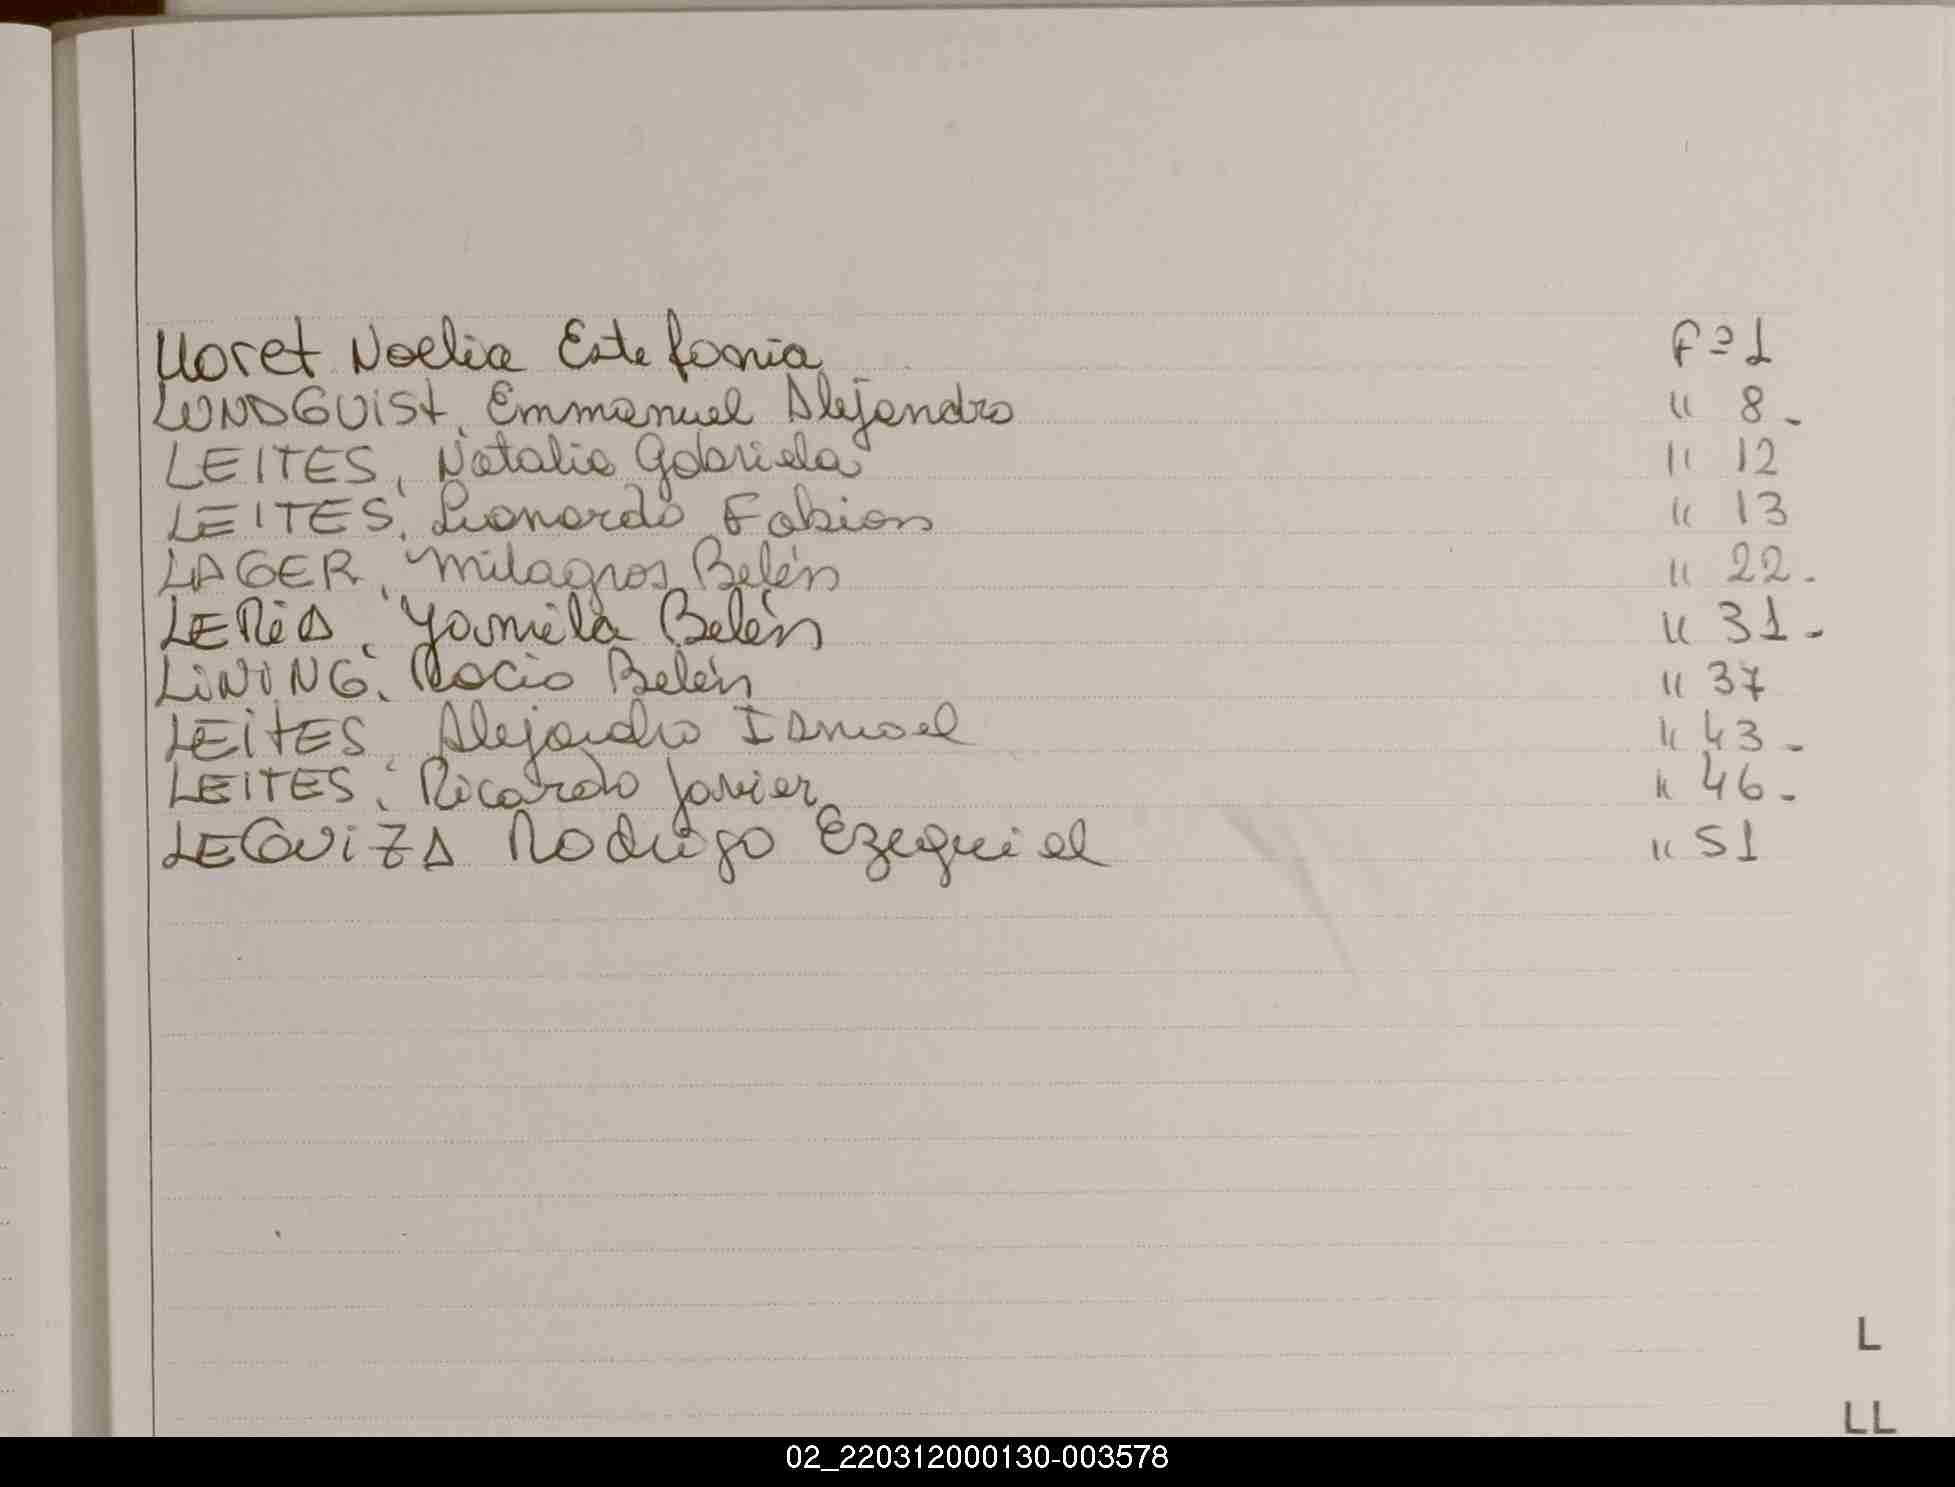 Lloret Noelia Estefania Fº 1
LUNDGUISt, Emmanuel Alejandro " 8-
LEITES, Natalia Gabriela " 12
LEITES, Leonardo Fabian " 13
LAGER, Milagros Belén " 22-
LERiA, Yamila Belén " 31-
LiNiNG, Rocio Belén " 37
LEitES, Alejandro Ismael " 43-
LEITES, Ricardo Javier " 46-
LEGUiZA Rodrigo Ezequiel " 51
L
LL
02_220312000130-003578